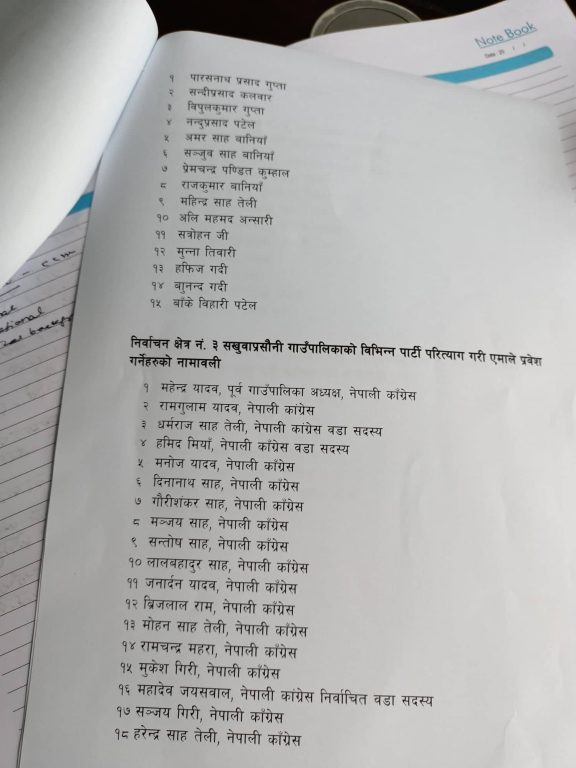 Note Book
Date: 20 / /
१ पारसनाथ प्रसाद गुप्ता
२ सन्दीप्रसाद कलवार
३ विपुलकुमार गुप्ता
४ नन्दुप्रसाद पटेल
५ अमर साह बानियाँ
६ सञ्जुव साह बानियाँ
७ प्रेमचन्द्र पण्डित कुम्हाल
८ राजकुमार बानियाँ
९ महिन्द्र साह तेली
१० अलि महमद अन्सारी
११ सत्रोहन जी
१२ मुन्ना तिवारी
१३ हफिज गदी
१४ बाुनन्द गदी
१५ बाँके विहारी पटेल
निर्वाचन क्षेत्र नं. ३ सखुवाप्रसौनी गाउँपालिकाको विभिन्न पार्टी परित्याग गरी एमाले प्रवेश
गर्नेहरुको नामावली
१ महेन्द्र यादव, पूर्व गाउँपालिका अध्यक्ष, नेपाली काँग्रेस
२ रामगुलाम यादव, नेपाली कांग्रेस
३ धर्मराज साह तेली, नेपाली काँग्रेस वडा सदस्य
४ हमिद मियाँ, नेपाली काँग्रेस वडा सदस्य
५ मनोज यादव, नेपाली काँग्रेस
६ दिनानाथ साह, नेपाली काँग्रेस
७ गौरीशंकर साह, नेपाली काँग्रेस
८ मञ्जय साह, नेपाली काँग्रेस
९ सन्तोष साह, नेपाली काँग्रेस
१० लालबहादुर साह, नेपाली काँग्रेस
११ जनार्दन यादव, नेपाली काँग्रेस
१२ ब्रिजलाल राम, नेपाली काँग्रेस
१३ मोहन साह तेली, नेपाली काँग्रेस
१४ रामचन्द्र महरा, नेपाली काँग्रेस
१५ मुकेश गिरी, नेपाली काँग्रेस
१६ महादेव जयसवाल, नेपाली कांग्रेस निर्वाचित वडा सदस्य
१७ सञ्जय गिरी, नेपाली काँग्रेस
१८ हरेन्द्र साह तेली, नेपाली काँग्रेस